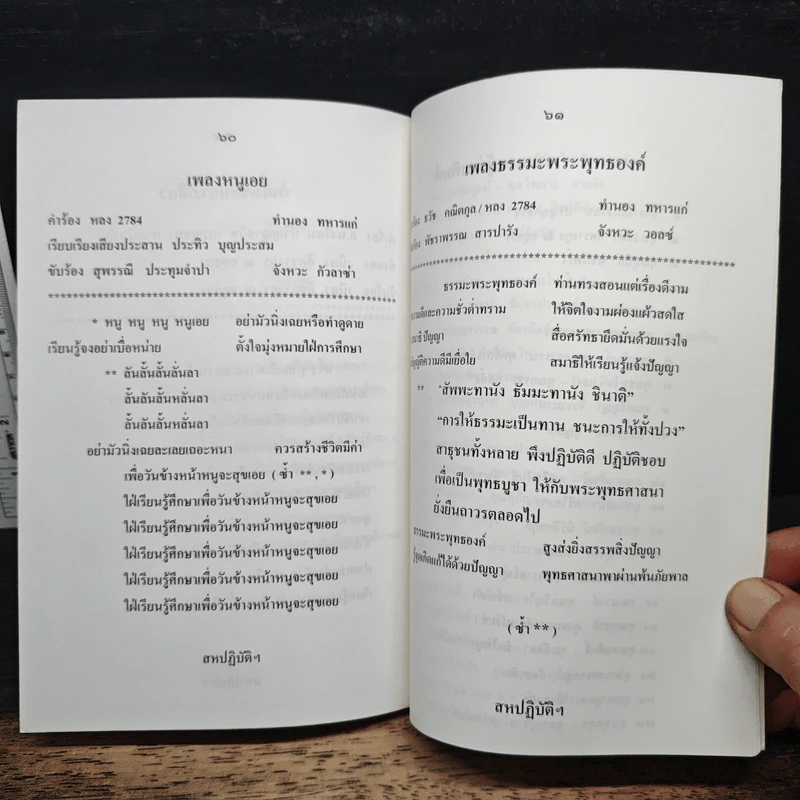 ๖๐
เพลงหนูเอย
คำร้อง หลง 2784 ทำนอง ทหารแก่
เรียบเรียงเสียงประสาน ประทิว บุญประสม
ขับร้อง สุพรรณี ประทุมจำปา จังหวะ กัวลาซ่า
* หนู หนู หนู หนูเอย อย่ามัวนิ่งเฉยหรือทำดูดาย
เรียนรู้จงอย่าเบื่อหน่าย ตั้งใจมุ่งหมายใฝ่การศึกษา
** ลันลั้นลั้นลั่นลา
ลั้นลันลั้นหลั่นลา
ลั้นลันลั้นหลั่นลา
อย่ามัวนิ่งเฉยละเลยเถอะหนา ควรสร้างชีวิตมีค่า
เพื่อวันข้างหน้าหนูจะสุขเอย ( ซ้ำ **,*)
ใฝ่เรียนรู้ศึกษาเพื่อวันข้างหน้าหนูจะสุขเอย
ใฝ่เรียนรู้ศึกษาเพื่อวันข้างหน้าหนูจะสุขเอย
ใฝ่เรียนรู้ศึกษาเพื่อวันข้างหน้าหนูจะสุขเอย
ใฝ่เรียนรู้ศึกษาเพื่อวันข้างหน้าหนูจะสุขเอย
ใฝ่เรียนรู้ศึกษาเพื่อวันข้างหน้าหนูจะสุขเอย
สหปฏิบัติฯ
๖๑
เพลงธรรมะพระพุทธองค์
ธวัช คณิตกูล / หลง 2784 ทำนอง ทหารแก่
พัชราพรรณ สารปารัง จังหวะ วอลซ์
ธรรมะพระพุทธองค์ ท่านทรงสอนแต่เรื่องดีงาม
ดีและความชั่วต่ำทราม ให้จิตใจงามผ่องแผ้วสดใส
ปัญญา สื่อศรัทธายึดมั่นด้วยแรงใจ
บัญญัติความดีมีเยื่อใย สมาธิให้เรียนรู้แจ้งปัญญา
** "สัพพะทานัง ธัมมะทานัง ชินาติ"
"การให้ธรรมะเป็นทาน ชนะการให้ทั้งปวง"
สาธุชนทั้งหลาย พึงปฏิบัติดี ปฏิบัติชอบ
เพื่อเป็นพุทธบูชา ให้กับพระพุทธศาสนา
ยั่งยืนถาวรตลอดไป
ธรรมะพระพุทธองค์ สูงส่งยิ่งสรรพสิ่งปัญญา
คิดแก้ได้ด้วยปัญญา พุทธศาสนาพาผ่านพ้นภัยพาล
( ซ้ำ ** )
สหปฏิบัติฯ